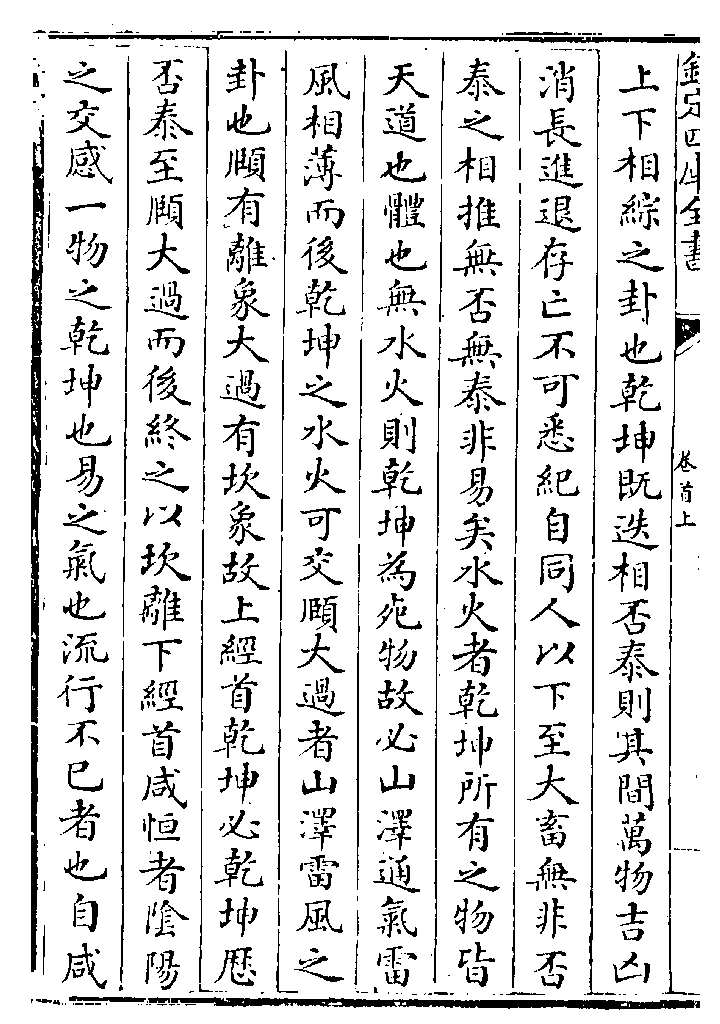 欽定四庫全書
卷首上
上下相綜之卦也乾坤既迭相否泰則其間萬物吉凶
消長進退存亡不可悉紀自同人以下至大畜無非否
泰之相推無否無泰非易矣水火者乾坤所有之物皆
天道也體也無水火則乾坤為死物故必山澤通氣雷
風相薄而後乾坤之水火可交頤大過者山澤雷風之
卦也頤有離象大過有坎象故上經首乾坤必乾坤歷
否泰至頤大過而後終之以坎離下經首咸恒者陰陽
之交感一物之乾坤也易之氣也流行不已者也自咸